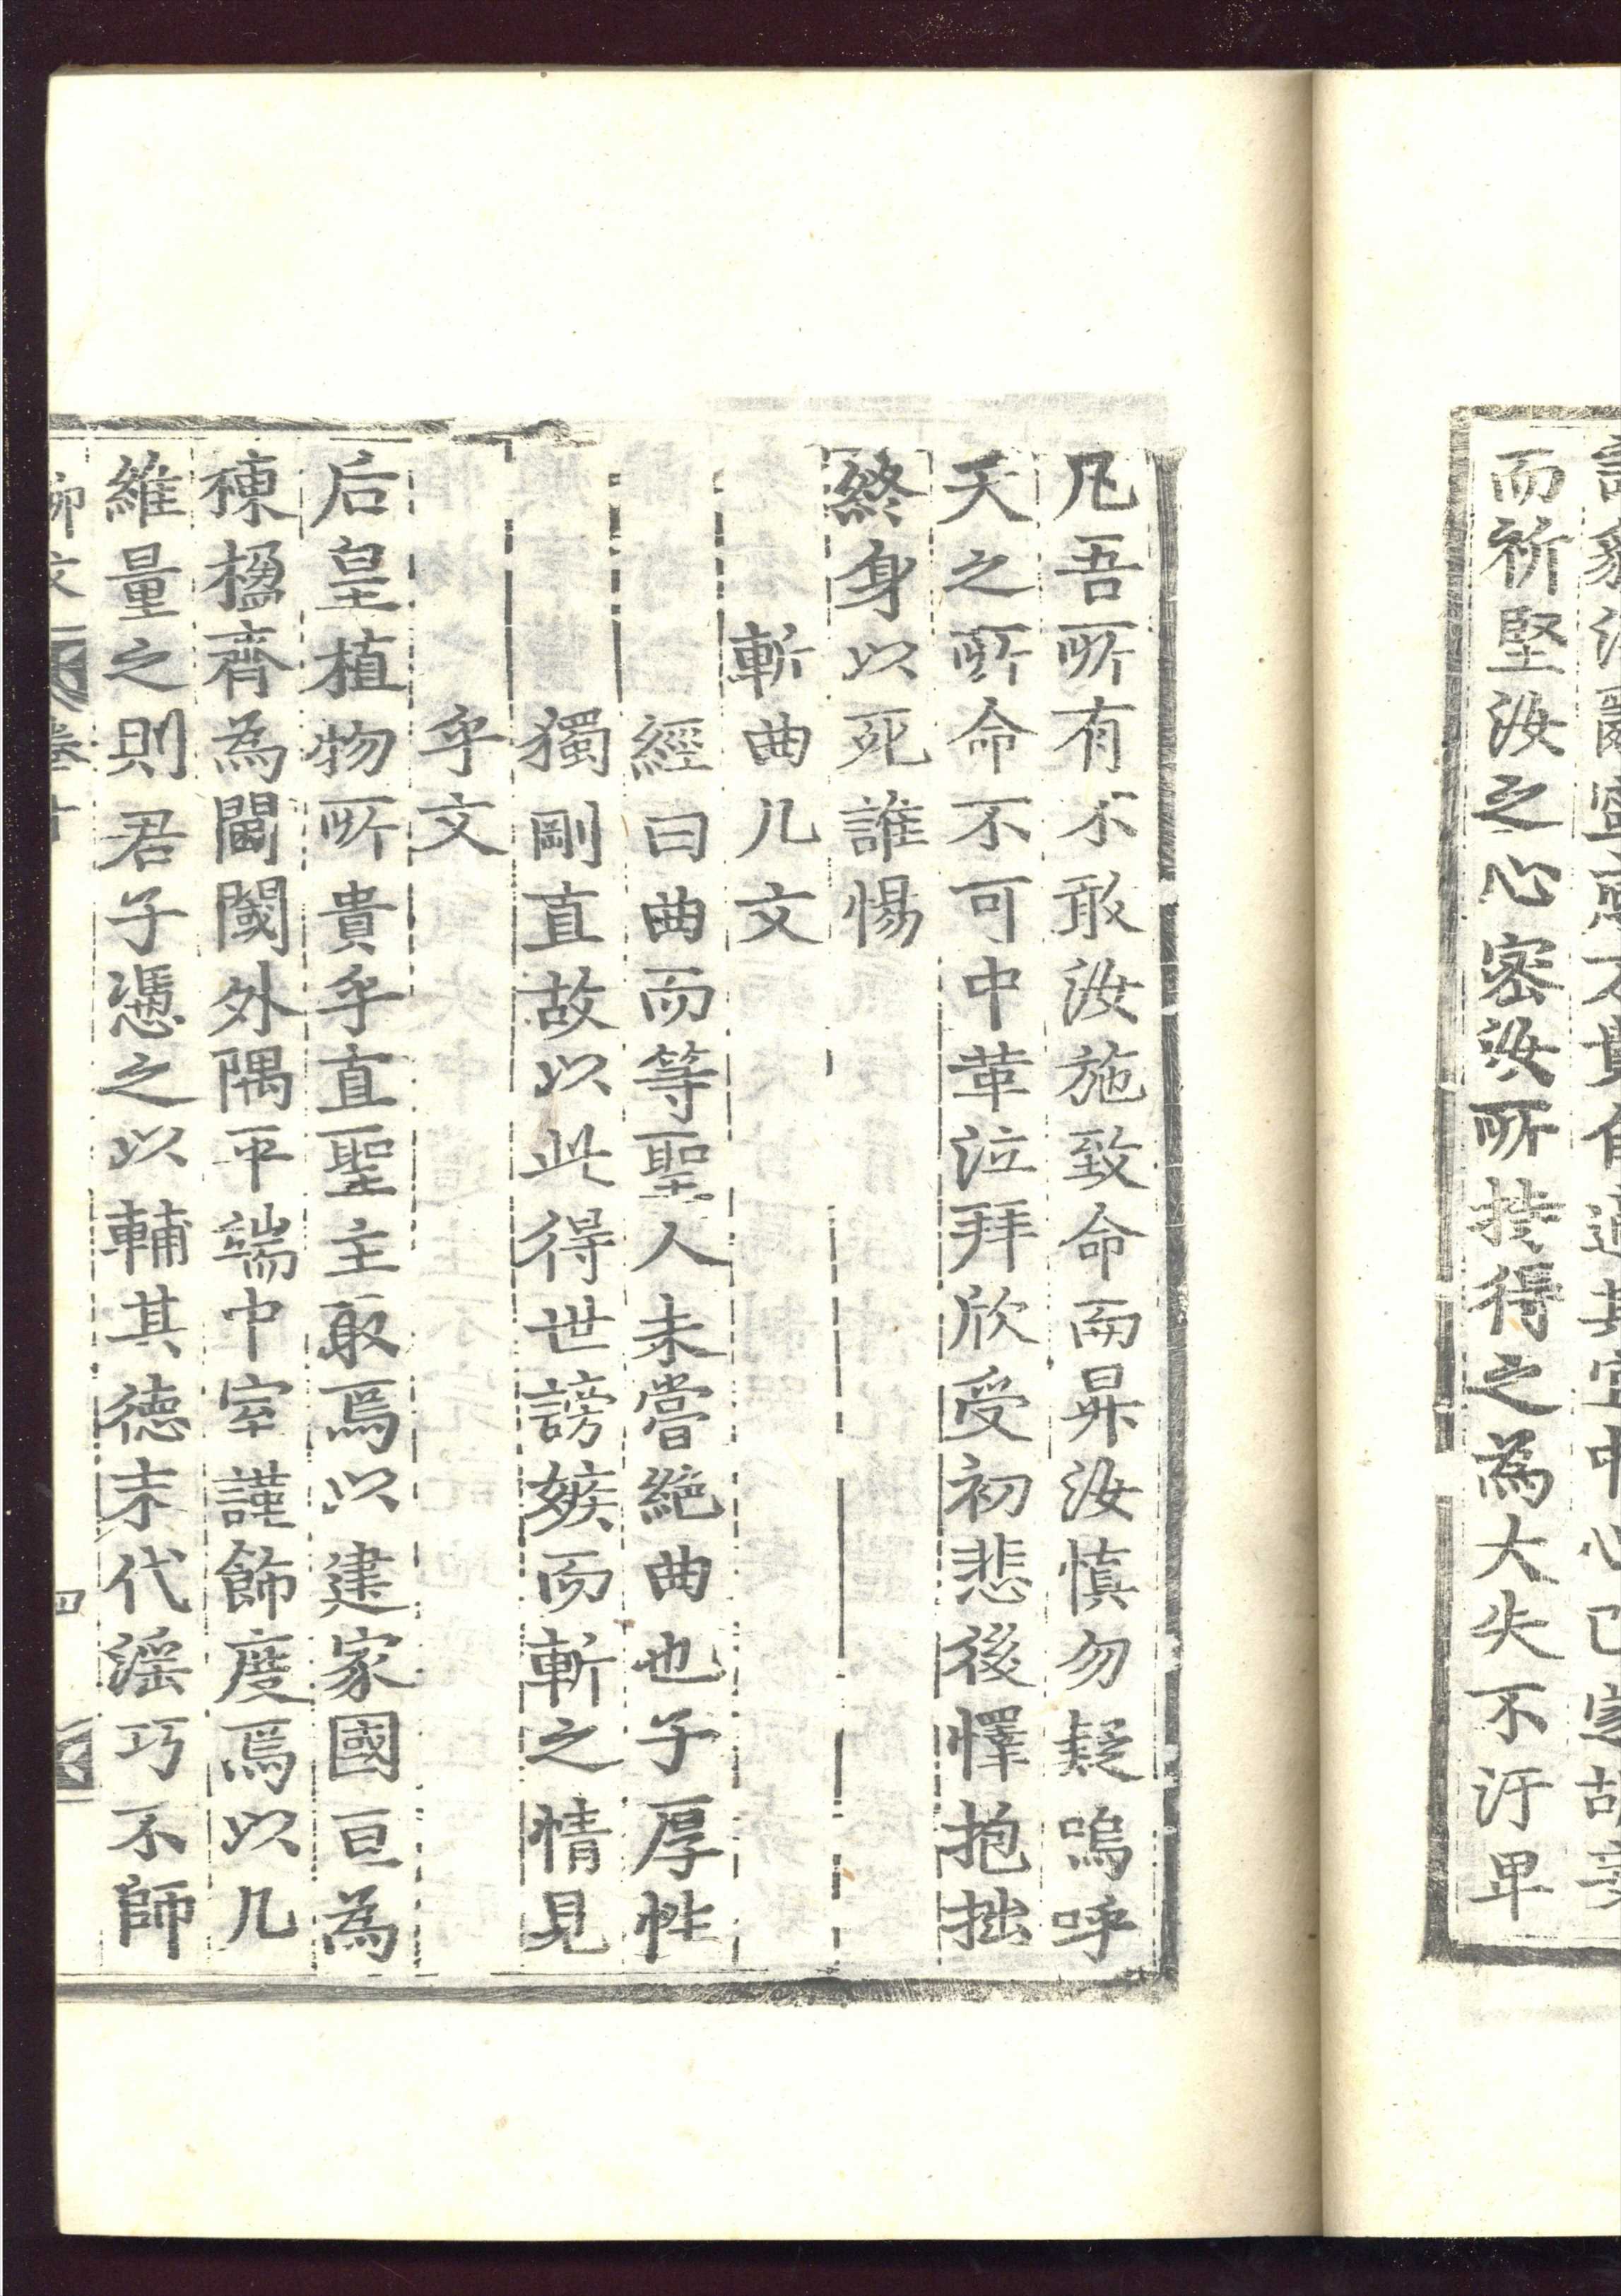 而祈堅汝之心密汝所持得之為大失不汙卑
凡吾所有不敢汝施致命而昇汝慎勿疑嗚呼
天之所命不可中革泣拜欣受初悲後懌抱拙
終身以死誰惕
斬曲几文
經曰曲而等聖人未嘗絶曲也子厚性
獨剛直故以此得世謗嫉而斬之情見
乎文
后皇植物所貴乎直聖主取焉以建家國亘為
棟楹齊為閫閾外隅平端中室謹飾度焉以几
維量之則君子憑之以輔其德末代滛巧不師
柳文 卷十 四